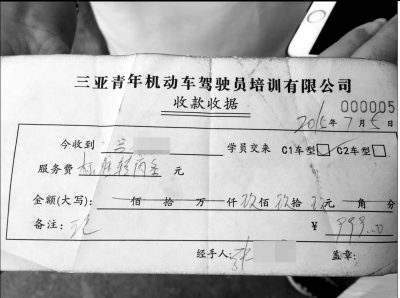 三亚青年机动车驾驶员培训有限公司
收款收据
000005
2015年7月5日
今收到 学员交来 C1车型 C2车型
服务费 元
金额(大写): 佰 拾 万 仟 玖佰 玖拾 玖元 角 分
备注: ¥ 999.00
经手人: 张 盖章: